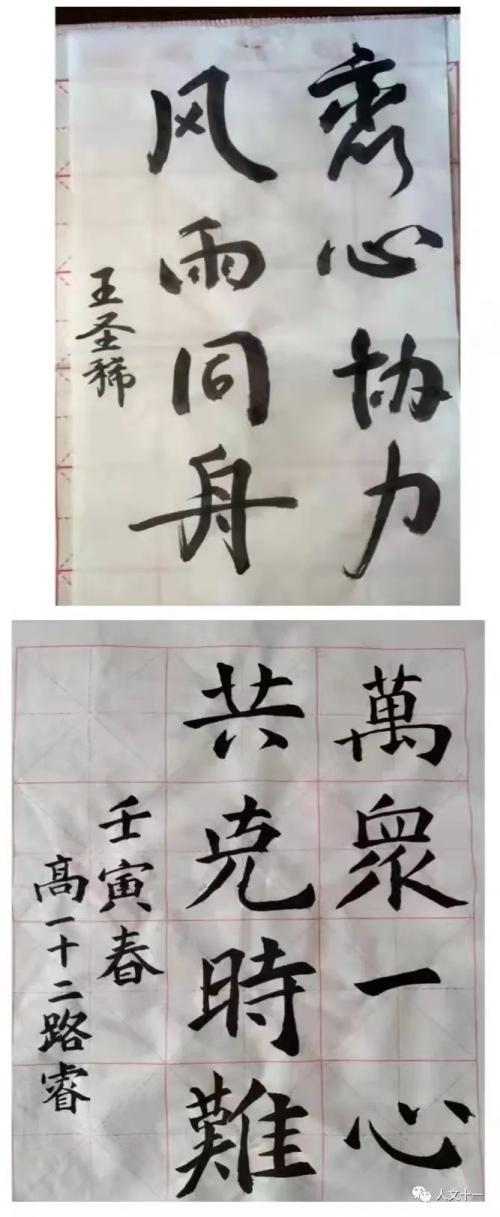 齊心协力
风雨同舟
王圣稀
萬衆一心
共克時難
壬寅春
高一十二路睿
人文十一